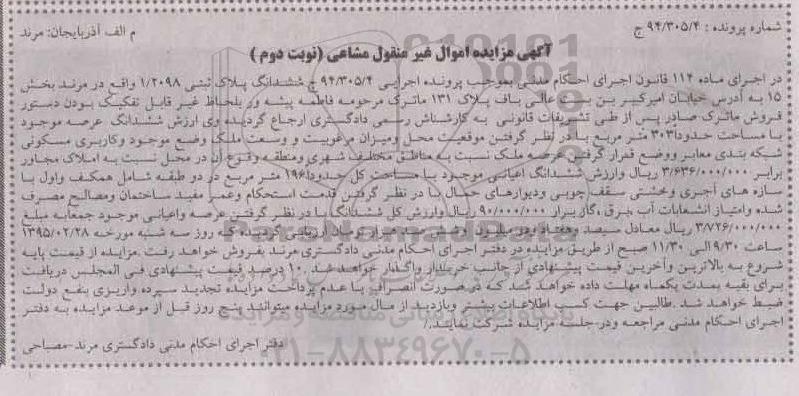 شماره پرونده : ۹۴/۳۰۵/۴ ج
م الف آذربایجان: مرند
آگهی مزایده اموال غیر منقول مشاعی (نوبت دوم )
در اجرای ماده ۱۱۴ قانون اجرای احکام مدنی بموجب پرونده اجرایی ۹۴/۳۰۵/۴ ج ششدانگ پلاک ثبتی ۱/۲۰۹۸ واقع در مرند بخش
۱۵ به آدرس خیابان امیرکبیر بن بست عالی باف پلاک ۱۳۱ ماترک مرحومه فاطمه پیشه ور بلحاظ غیر قابل تفکیک بودن دستور
فروش ماترک صادر پس از طی تشریفات قانونی به کارشناس رسمی دادگستری ارجاع گردیده وی ارزش ششدانگ عرصه موجود
با مساحت حدودا۳۰۳ متر مربع با در نظر گرفتن موقعیت محل ومیزان مرغوبیت و وسعت ملک وضع موجود وکاربری مسکونی
شبکه بندی معابر ووضع قرار گرفتن عرصه ملک نسبت به مناطق مختلف شهری ومنطقه وقوع آن در محل نسبت به املاک مجاور
برابر ۳/۶۳۶/۰۰۰/۰۰۰ ریال وارزش ششدانگ اعیانی موجود با مساحت کل حدودا۱۹۶ متر مربع در دو طبقه شامل همکف واول با
سازه های آجری وخشتی سقف چوبی ودیوارهای حمال با در نظر گرفتن قدمت استحکام وعمر مفید ساختمان ومصالح مصرف
شده وامتیاز انشعابات آب ،برق ،گاز برابر ۹۰/۰۰۰/۰۰۰ ریال وارزش کل ششدانگ با در نظر گرفتن عرصه واعیانی موجود جمعا به مبلغ
۳/۷۲۶/۰۰۰/۰۰۰ ریال معادل سیصد وهفتاد ودو میلیون وششصد هزار تومان ارزیابی گردیده که روز سه شنبه مورخه ۱۳۹۵/۰۲/۲۸
ساعت ۹/۳۰ الی ۱۱/۳۰ صبح از طریق مزایده در دفتر اجرای احکام مدنی دادگستری مرند بفروش خواهد رفت .مزایده از قیمت پایه
شروع به بالاترین وآخرین قیمت پیشنهادی از جانب خریدار واگذار خواهد شد .۱۰ درصد قیمت پیشنهادی فی المجلس دریافت
برای بقیه بمدت یکماه مهلت داده خواهد شد که در صورت انصراف یا عدم پرداخت مزایده تجدید سپرده واریزی بنفع دولت
ضبط خواهد شد .طالبین جهت کسب اطلاعات بیشتر وبازدید از مال مورد مزایده میتوانند پنج روز قبل از موعد مزایده به دفتر
اجرای احکام مدنی مراجعه ودر جلسه مزایده شرکت نمایند./
دفتر اجرای احکام مدنی دادگستری مرند-مصباحی
۰۲۱-۸۸۳۴۹۶۷۰-۵